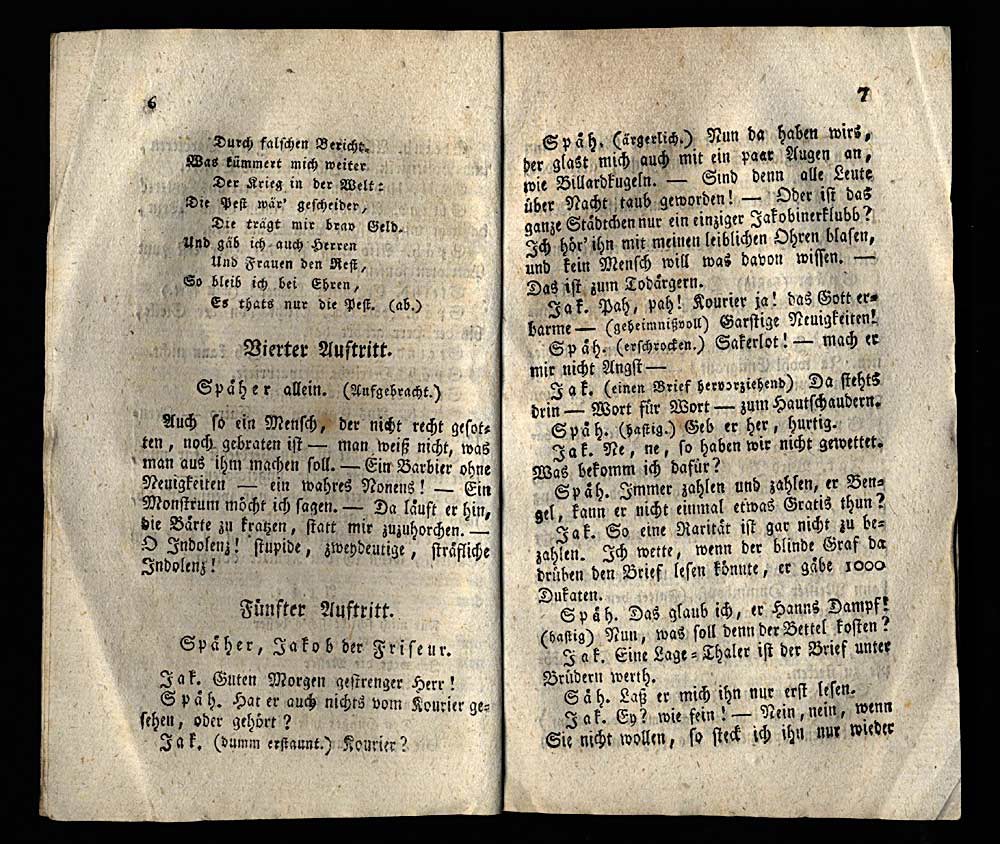 6
Durch falschen Bericht.
Was kümmert mich weiter
Der Krieg in der Welt:
Die Pest wär' gescheider,
Die trägt mir brav Geld.
Und gäb ich auch Herren
Und Frauen den Rest,
So bleib ich bei Ehren,
Es thats nur die Pest. (ab.)
Vierter Auftritt.
Späher allein. (Aufgebracht.)
Auch so ein Mensch, der nicht recht gesot=
ten, noch gebraten ist — man weiß nicht, was
man aus ihm machen soll. — Ein Barbier ohne
Neuigkeiten — ein wahres Nonens! — Ein
Monstrum möcht ich sagen. — Da läuft er hin,
die Bärte zu kratzen, statt mir zuzuhorchen. —
O Indolenz! stupide, zweydeutige, sträfliche
Indolenz!
Fünfter Auftritt.
Späher, Jakob der Friseur.
Jak. Guten Morgen gestrenger Herr!
Späh. Hat er auch nichts vom Kourier ge=
sehen, oder gehört?
Jak. (dumm erstaunt.) Kourier?
7
Späh. (ärgerlich.) Nun da haben wirs,
der glast mich auch mit ein paar Augen an,
wie Billardkugeln. — Sind denn alle Leute
über Nacht taub geworden! — Oder ist das
ganze Städtchen nur ein einziger Jakobinerklubb?
Ich hör' ihn mit meinen leiblichen Ohren blasen,
und kein Mensch will was davon wissen. —
Das ist zum Todärgern.
Jak. Pah, pah! Kourier ja! das Gott er=
barme — (geheimnißvoll) Garstige Neuigkeiten!
Späh. (erschrocken.) Sakerlot! — mach er
mir nicht Angst —
Jak. (einen Brief hervorziehend) Da stehts
drin — Wort für Wort — zum Hautschaudern.
Späh. (hastig.) Geb er her, hurtig.
Jak. Ne, ne, so haben wir nicht gewettet.
Was bekomm ich dafür?
Späh. Immer zahlen und zahlen, er Ben=
gel, kann er nicht einmal etwas Gratis thun?
Jak. So eine Rarität ist gar nicht zu be=
zahlen. Ich wette, wenn der blinde Graf da
drüben den Brief lesen könnte, er gäbe 1000
Dukaten.
Späh. Das glaub ich, er Hanns Dampf!
(hastig) Nun, was soll denn der Bettel kosten?
Jak. Eine Lage=Thaler ist der Brief unter
Brüdern werth.
Säh. Laß er mich ihn nur erst lesen.
Jak. Ey? wie fein! — Nein, nein, wenn
Sie nicht wollen, so steck ich ihn nur wieder